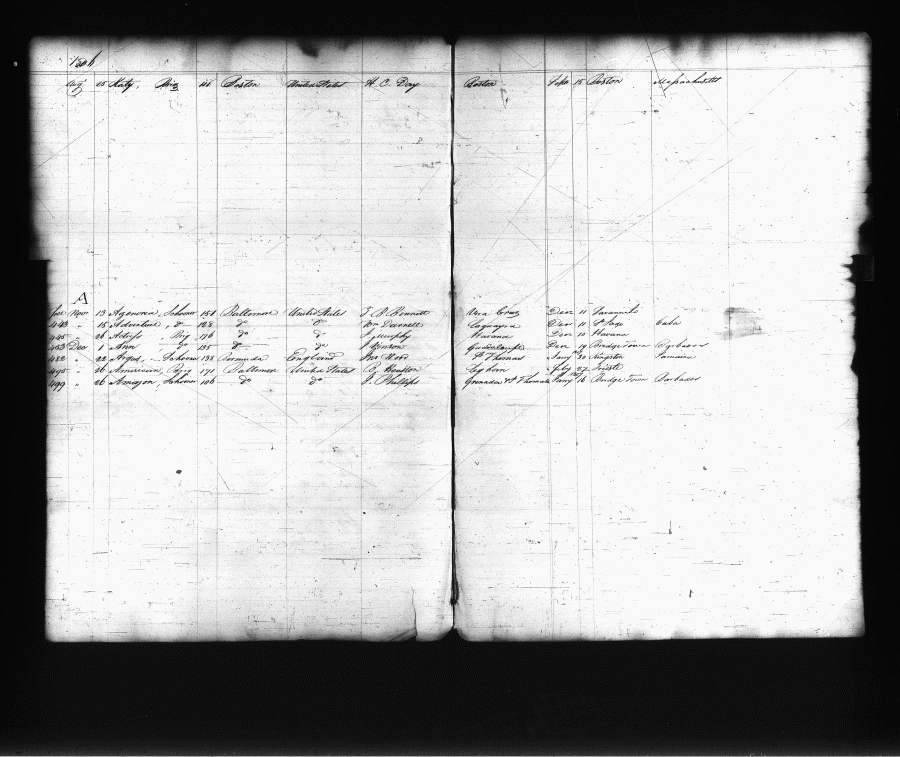 1806
Aug 25 Katy, Brig 118 Boston United States H. C. Day Boston Sepr 15 Boston Massachusetts
A
Nov 13 Agenoria, Schooner 151 Baltimore United States Vera Cruz Decr 11
443 " 15 Adventure, do 128 do do Laguayra Decr 11 St Iago Cuba
445 " 26 Brig 176 do do J. Murphy Havana Decr 11 Havana
453 Dec 1 Ann do 135 do do Guadaloupe Decr 19 Bridge Town Barbadoes
482 " 22 Argus, Schooner 138 Bermuda England St Thomas Jany 20 Kingston Jamaica
495 " 26 American, Brig 171 Baltimore United States Leghorn Feby 27 Trieste
499 " 26 Amazon Schooner 106 do do J. Phillips Grenada & St Thomas Jany 16 Bridge Town Barbadoes